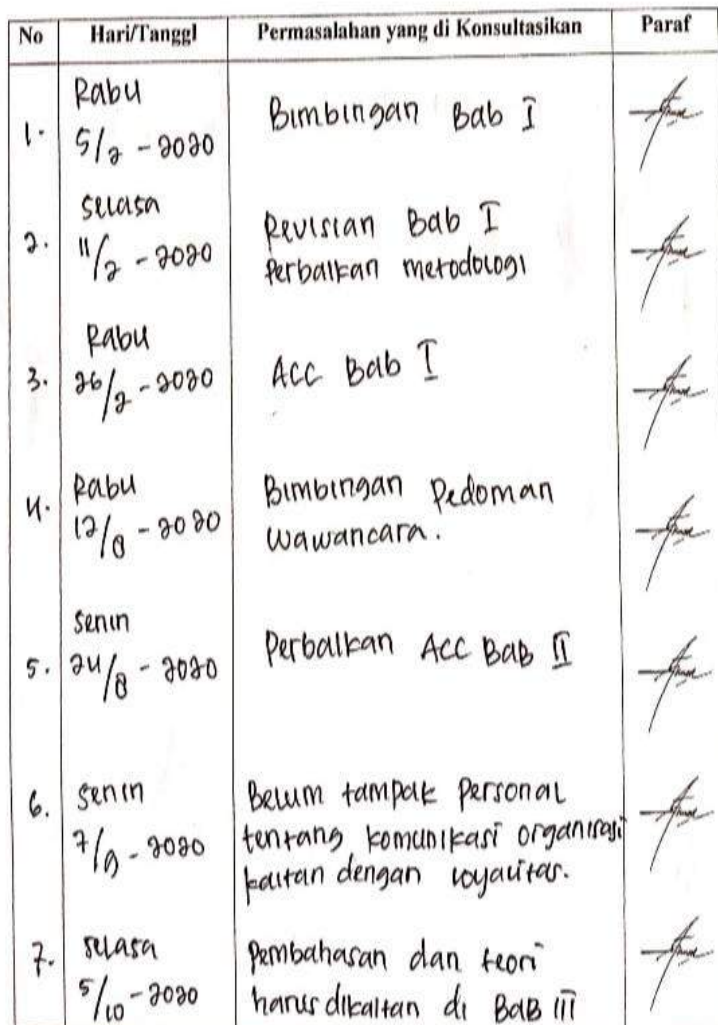 No Hari/Tanggl Permasalahan yang di Konsultasikan Paraf
Rabu
1. 5/2 - 2020 Bimbingan Bab I
Selasa
2. 11/2 - 2020 Revisian Bab I
Perbaikan metodologi
Rabu
3. 26/2 - 2020 ACC Bab I
Rabu
4. 12/8 - 2020 Bimbingan Pedoman
Wawancara.
Senin
5. 24/8 - 2020 Perbaikan ACC BaB II
6. Senin Belum tampak Personal
7/9 - 2020 tentang komunikasi organisasi
kaitan dengan loyalitas.
7. Selasa Pembahasan dan teori
5/10 - 2020 harus dikaitan di BaB III